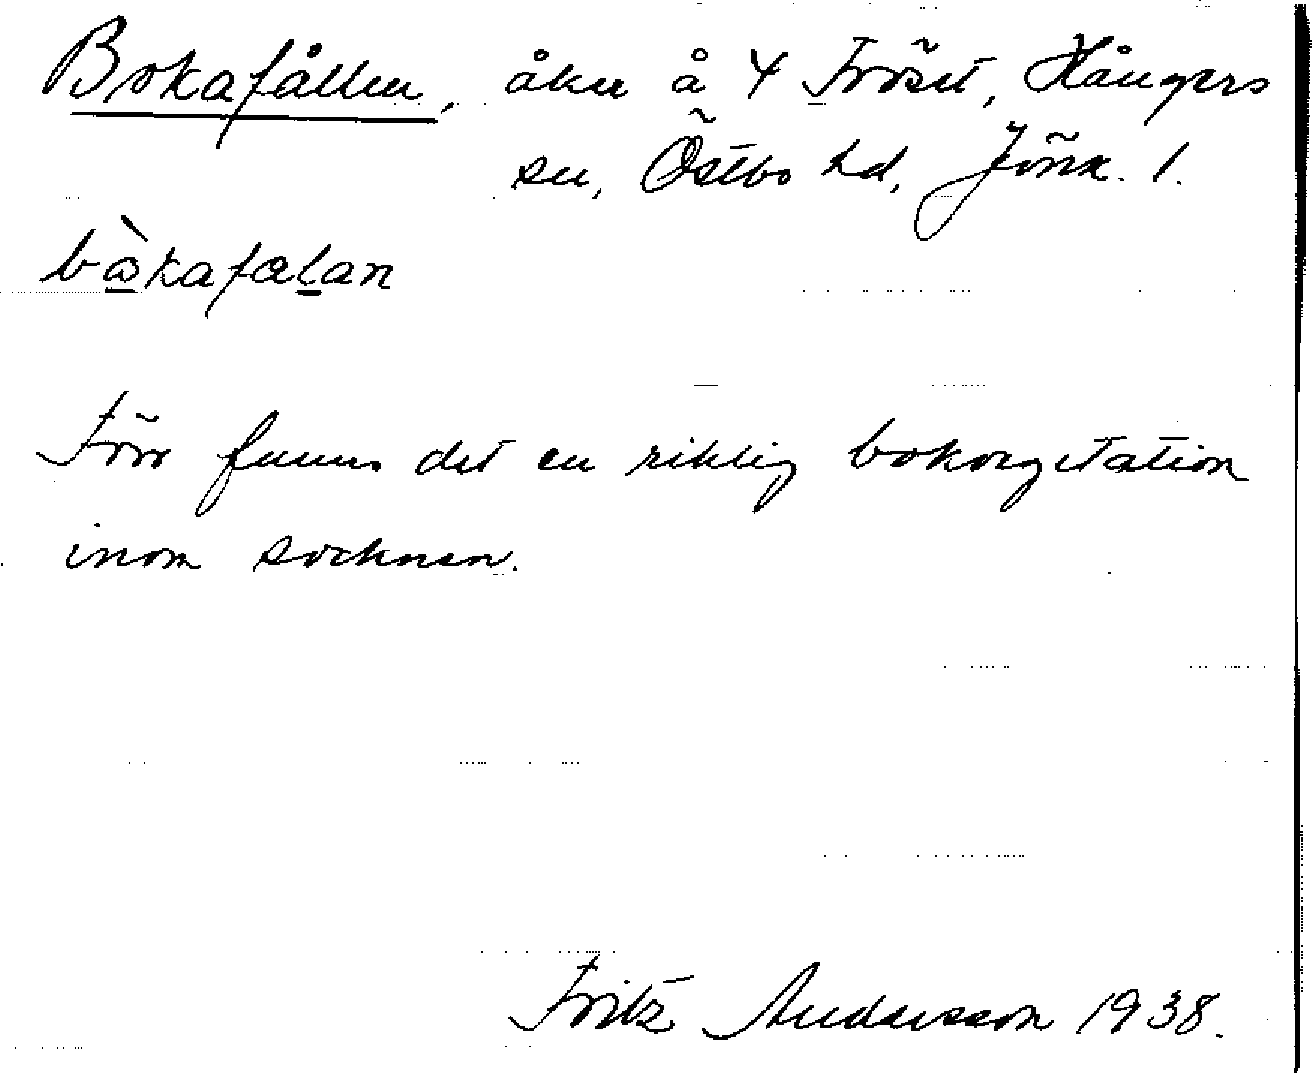 Bokafållen, åker å 4 Fröset, Hångers
sn, Östbo hd, Jönk. l.
bàkafalan
Förr fanns det en riklig bokvegetation
inom socknen.
Fritz Andersson 1938.